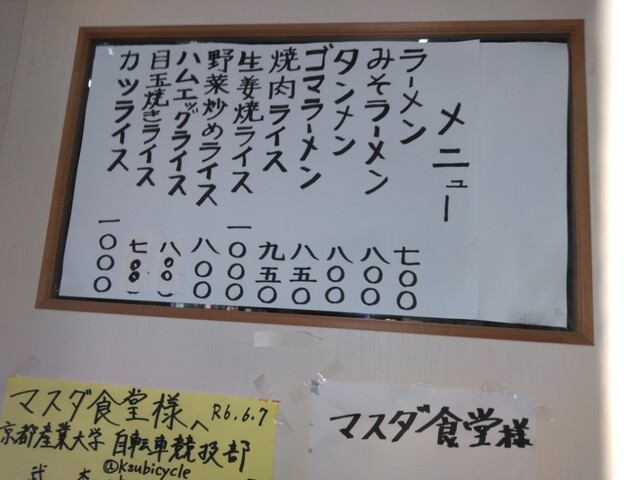 メニュー
ラーメン 七〇〇
みそラーメン 八〇〇
タンメン 八〇〇
ゴマラーメン 八五〇
焼肉ライス 九五〇
生姜焼ライス 一〇〇〇
野菜炒めライス 八〇〇
ハムエッグライス 八〇〇
目玉焼きライス 七〇〇
カツライス 一〇〇〇
マスダ食堂様へ R6.6.7
京都産業大学 自転車競技部
@ksubicycle
マスダ食堂様